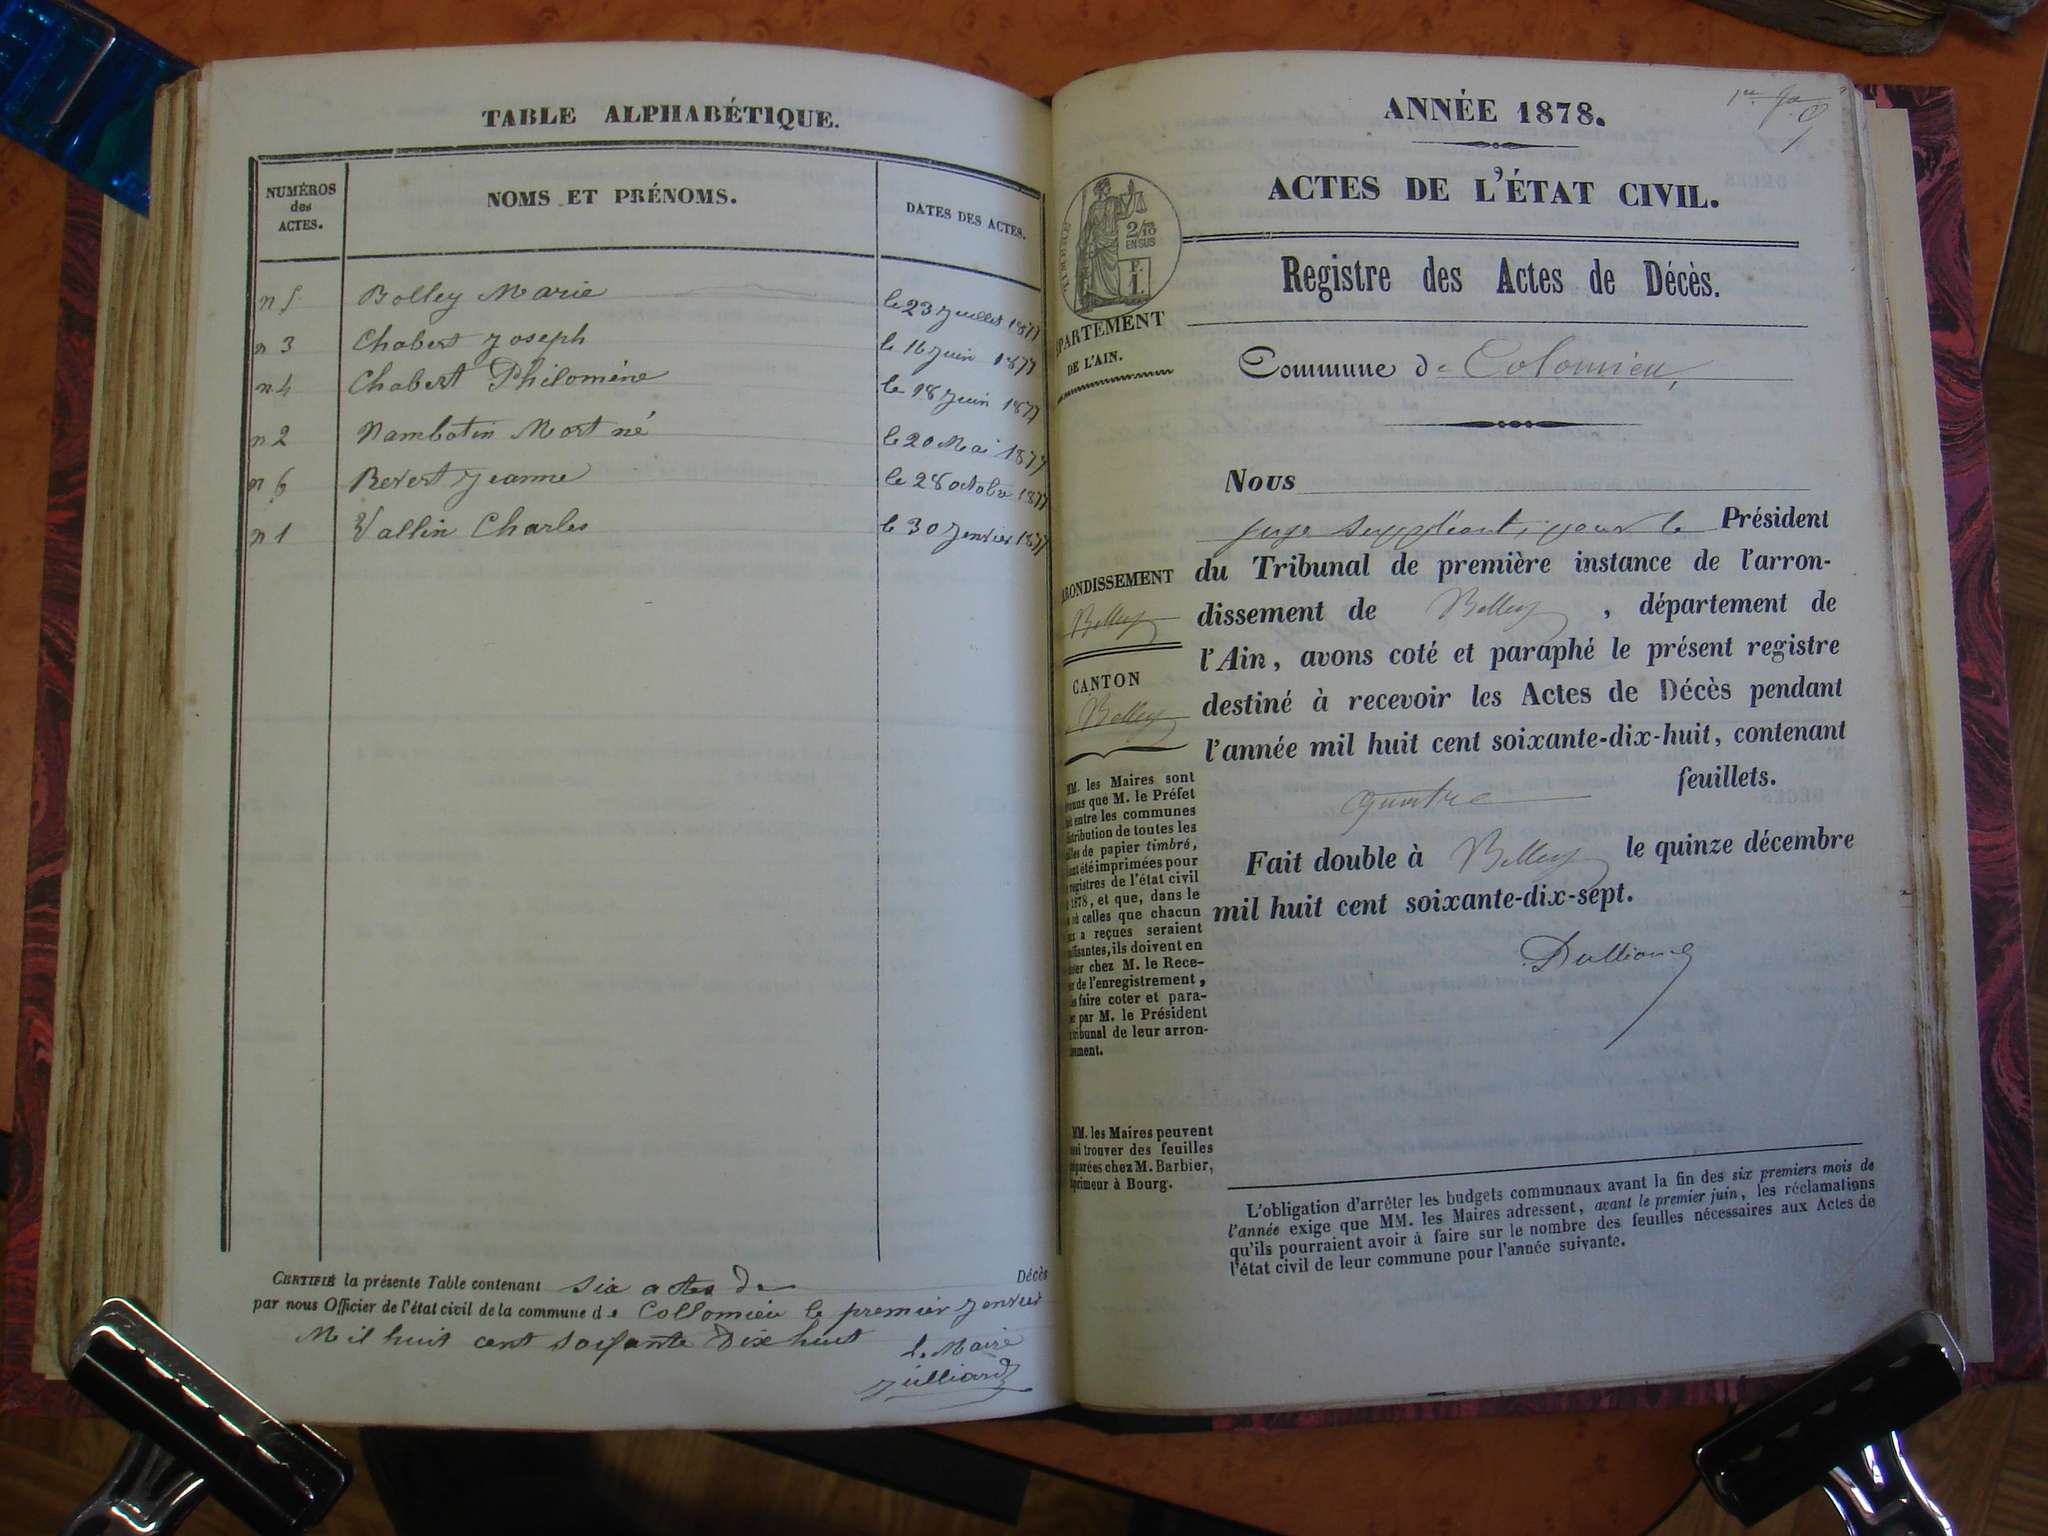 TABLE ALPHABÉTIQUE.
NUMÉROS
des
ACTES.
NOMS ET PRÉNOMS.
DATES DES ACTES.
n 5 Bolley Marie le 23 Juillet 1877
n 3 Chabert Joseph le 16 juin 1877
n 4 Chabert Philomène le 18 juin 1877
n 2 Nambotin Mort né le 20 Mai 1877
n 6 Revert Jeanne le 28 octobre 1877
n 1 Vallin Charles le 30 Jenvier 1877
CERTIFIÉ la présente Table contenant six actes de Décès
par nous Officier de l'état civil de la commune de Collomieu le premier Jenvier
Mil huit cent soixante Dix huit
le Maire
Julliard
ANNÉE 1878.
ACTES DE L'ÉTAT CIVIL.
TIMBRE
2/10
EN SUS
F.
1.
Registre des Actes de Décès.
DÉPARTEMENT
DE L'AIN.
Commune de Colomieu,
Nous
juge suppléant, pour le Président
du Tribunal de première instance de l'arron-
dissement de Belley, département de
l'Ain, avons coté et paraphé le présent registre
destiné à recevoir les Actes de Décès pendant
l'année mil huit cent soixante-dix-huit, contenant
quatre feuillets.
Fait double à Belley le quinze décembre
mil huit cent soixante-dix-sept.
ARRONDISSEMENT
Belley
CANTON
Belley
MM. les Maires sont
que M. le Préfet
entre les communes
distribution de toutes les
de papier timbré,
été imprimées pour
registres de l'état civil
1878, et que, dans le
celles que chacun
a reçues seraient
ils doivent en
chez M. le Rece-
de l'enregistrement,
faire coter et para-
par M. le Président
tribunal de leur arron-
dissement.
MM. les Maires peuvent
trouver des feuilles
préparées chez M. Barbier,
imprimeur à Bourg.
L'obligation d'arrêter les budgets communaux avant la fin des six premiers mois de
l'année exige que MM. les Maires adressent, avant le premier juin, les réclamations
qu'ils pourraient avoir à faire sur le nombre des feuilles nécessaires aux Actes de
l'état civil de leur commune pour l'année suivante.